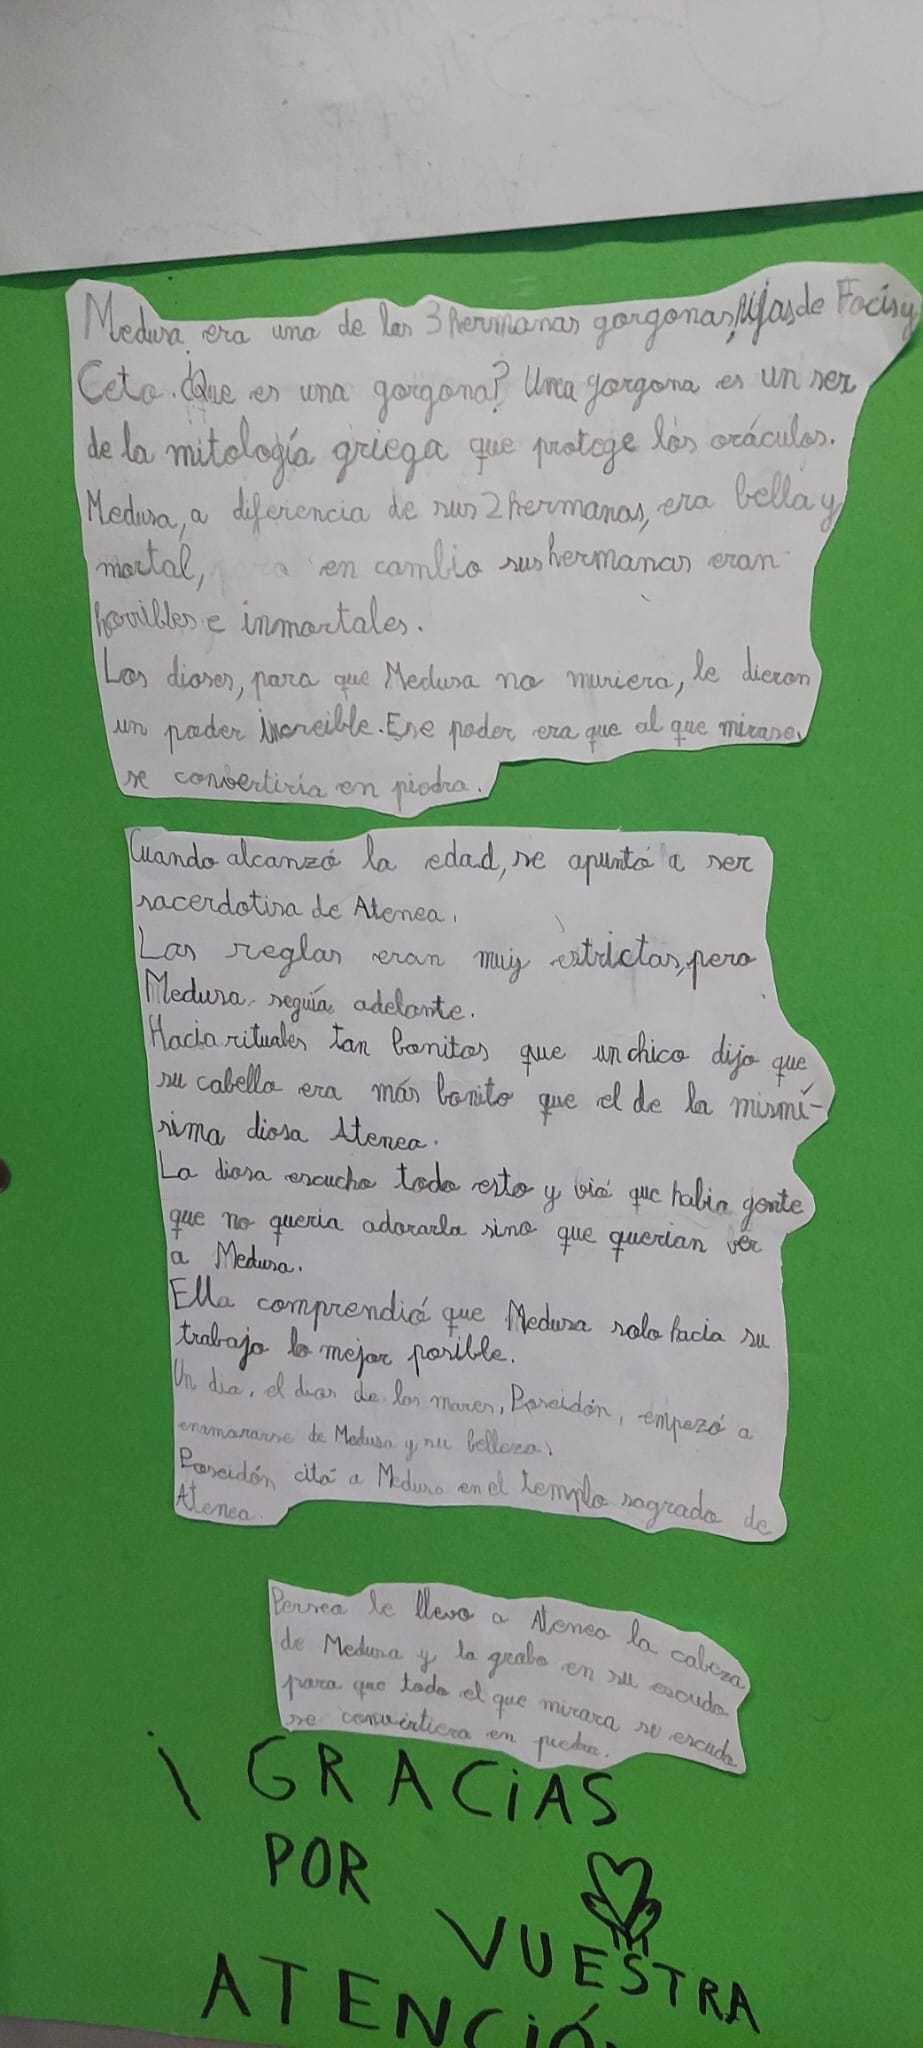 Medusa era una de las 3 hermanas gorgonas, hijas de Focis y
Ceto. ¿Que es una gorgona? Una gorgona es un ser
de la mitología griega que protege los oráculos.
Medusa, a diferencia de sus 2 hermanas, era bella y
mortal, en cambio sus hermanas eran
horribles e inmortales.
Los dioses, para que Medusa no muriera, le dieron
un poder increible. Ese poder era que al que mirase,
se convertiria en piedra.
Cuando alcanzó la edad, se apuntó a ser
sacerdotisa de Atenea.
Las reglas eran muy estrictas, pero
Medusa seguía adelante.
Hacia rituales tan bonitos que un chico dijo que
su cabello era más bonito que el de la mismí-
sima diosa Atenea.
La diosa escucho todo esto y vió que habia gente
que no queria adorarla sino que querian ver
a Medusa.
Ella comprendió que Medusa solo hacia su
trabajo lo mejor posible.
Un dia, el dios de los mares, Poseidón, empezó a
enamorarse de Medusa y su belleza.
Poseidón citó a Medusa en el templo sagrado de
Atenea.
Perseo le llevo a Atenea la cabeza
de Medusa y la grabo en su escudo
para que todo el que mirara su escudo
se convirtiera en piedra.
¡GRACIAS
POR
VUESTRA
ATENCIÓ